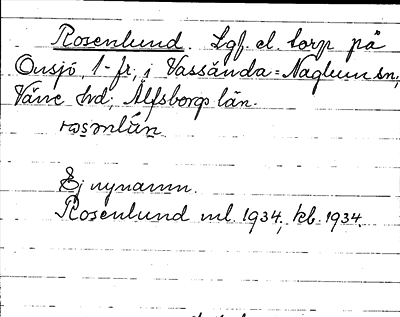 Rosenlund. Lgf. el. torp på
Onsjö, 1-fr, i Vassända=Naglum sn;
Väne hd; Älfsborgs län.
rosənlán
Ej nynamn.
Rosenlund ml. 1934; kb. 1934.